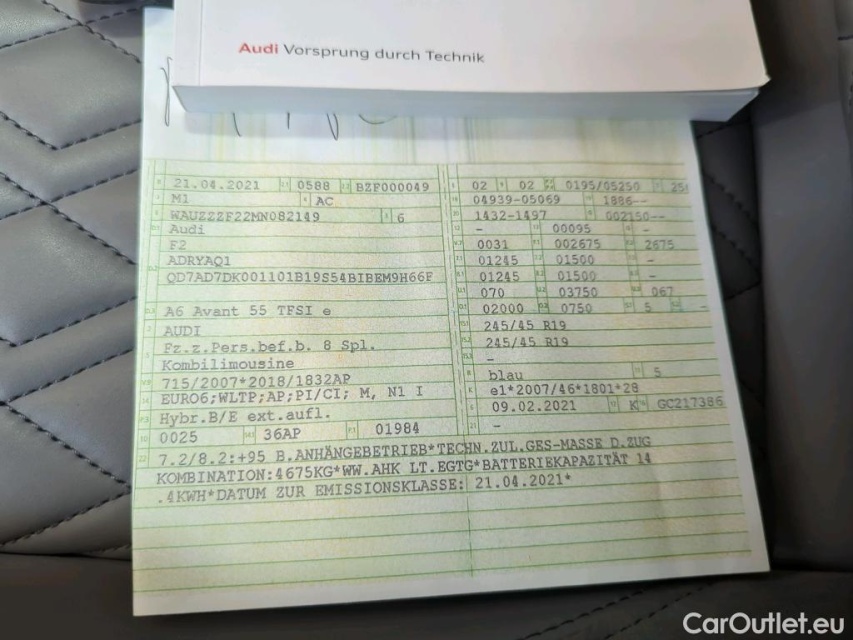 Audi Vorsprung durch Technik
21.04.2021 0588 BZF000049
M1 AC
WAUZZZF22MN082149 6
Audi
F2
ADRYAQ1
QD7AD7DK001101B19S54BIBEM9H66F
A6 Avant 55 TFSI e
AUDI
Fz.z.Pers.bef.b. 8 Spl.
Kombilimousine
715/2007*2018/1832AP
EURO6;WLTP;AP;PI/CI; M, N1 I
Hybr.B/E ext.aufl.
0025 36AP 01984
02 02 0195/05250
04939-05069 1886--
1432-1497 002150--
- 00095 -
0031 002675 2675
01245 01500 -
01245 01500 -
070 03750 067
02000 0750 5 -
245/45 R19
245/45 R19
-
blau 5
e1*2007/46*1801*28
09.02.2021 K GC217386
-
7.2/8.2:+95 B.ANHÄNGEBETRIEB*TECHN.ZUL.GES-MASSE D.ZUG
KOMBINATION:4675KG*WW.AHK LT.EGTG*BATTERIEKAPAZITÄT 14
.4KWH*DATUM ZUR EMISSIONSKLASSE: 21.04.2021*
CarOutlet.eu